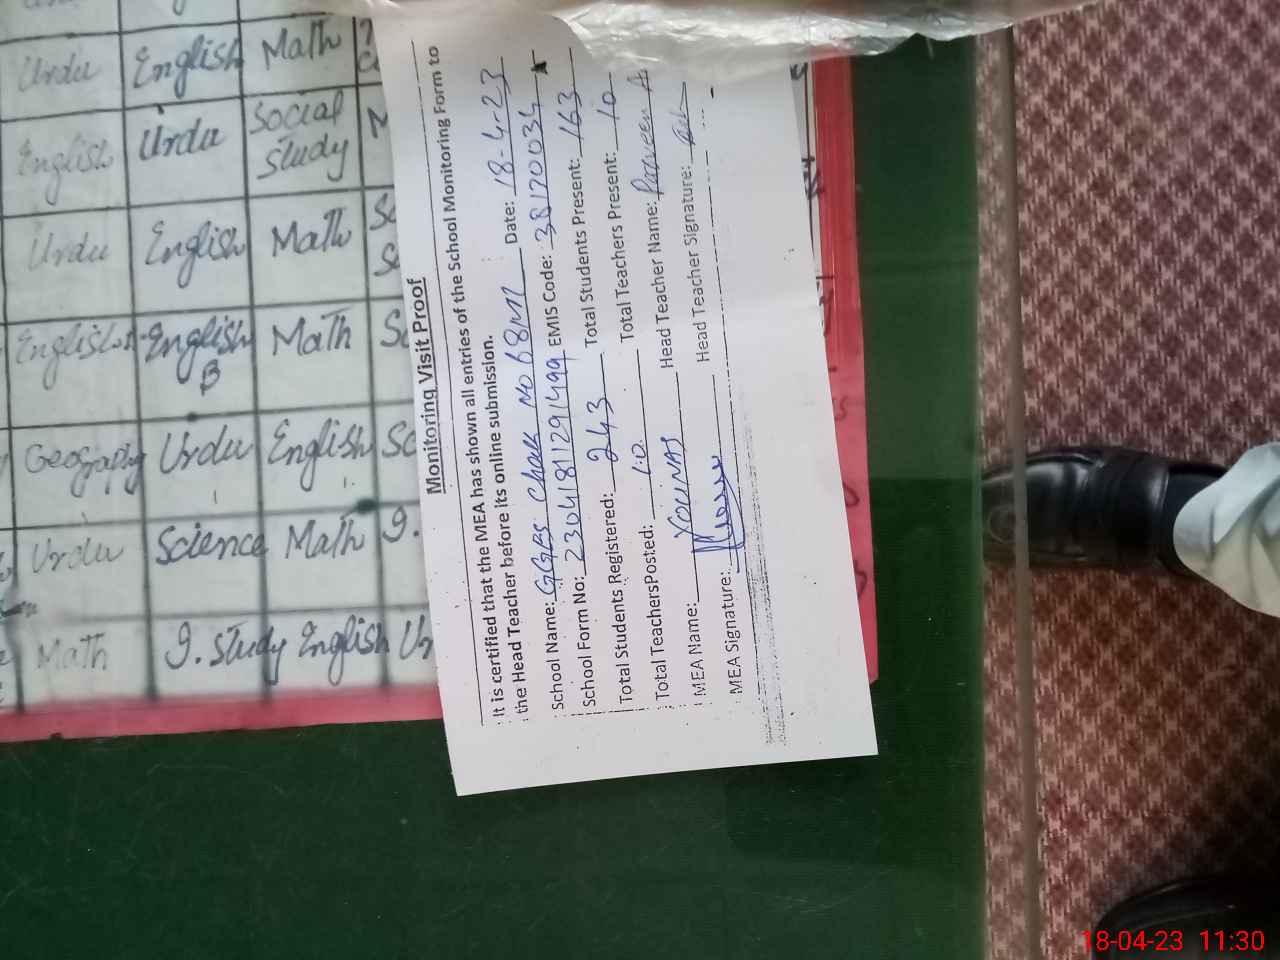 Urdu English Math
English Urdu Social study
Urdu English Math
English English B Math
Geography Urdu English Sc
Urdu Science Math g.
Math g. study English Ur
Monitoring Visit Proof
It is certified that the MEA has shown all entries of the School Monitoring Form to
the Head Teacher before its online submission. Date: 18-4-23
School Name: GGES Chak No 68M EMIS Code: 38120034
School Form No: 23041811291499 Total Students Present: 163
Total Students Registered: 243 Total Teachers Present: 10
Total TeachersPosted: 10 Head Teacher Name: Parveen A
MEA Name: YOUNAS Head Teacher Signature:
MEA Signature:
18-04-23 11:30